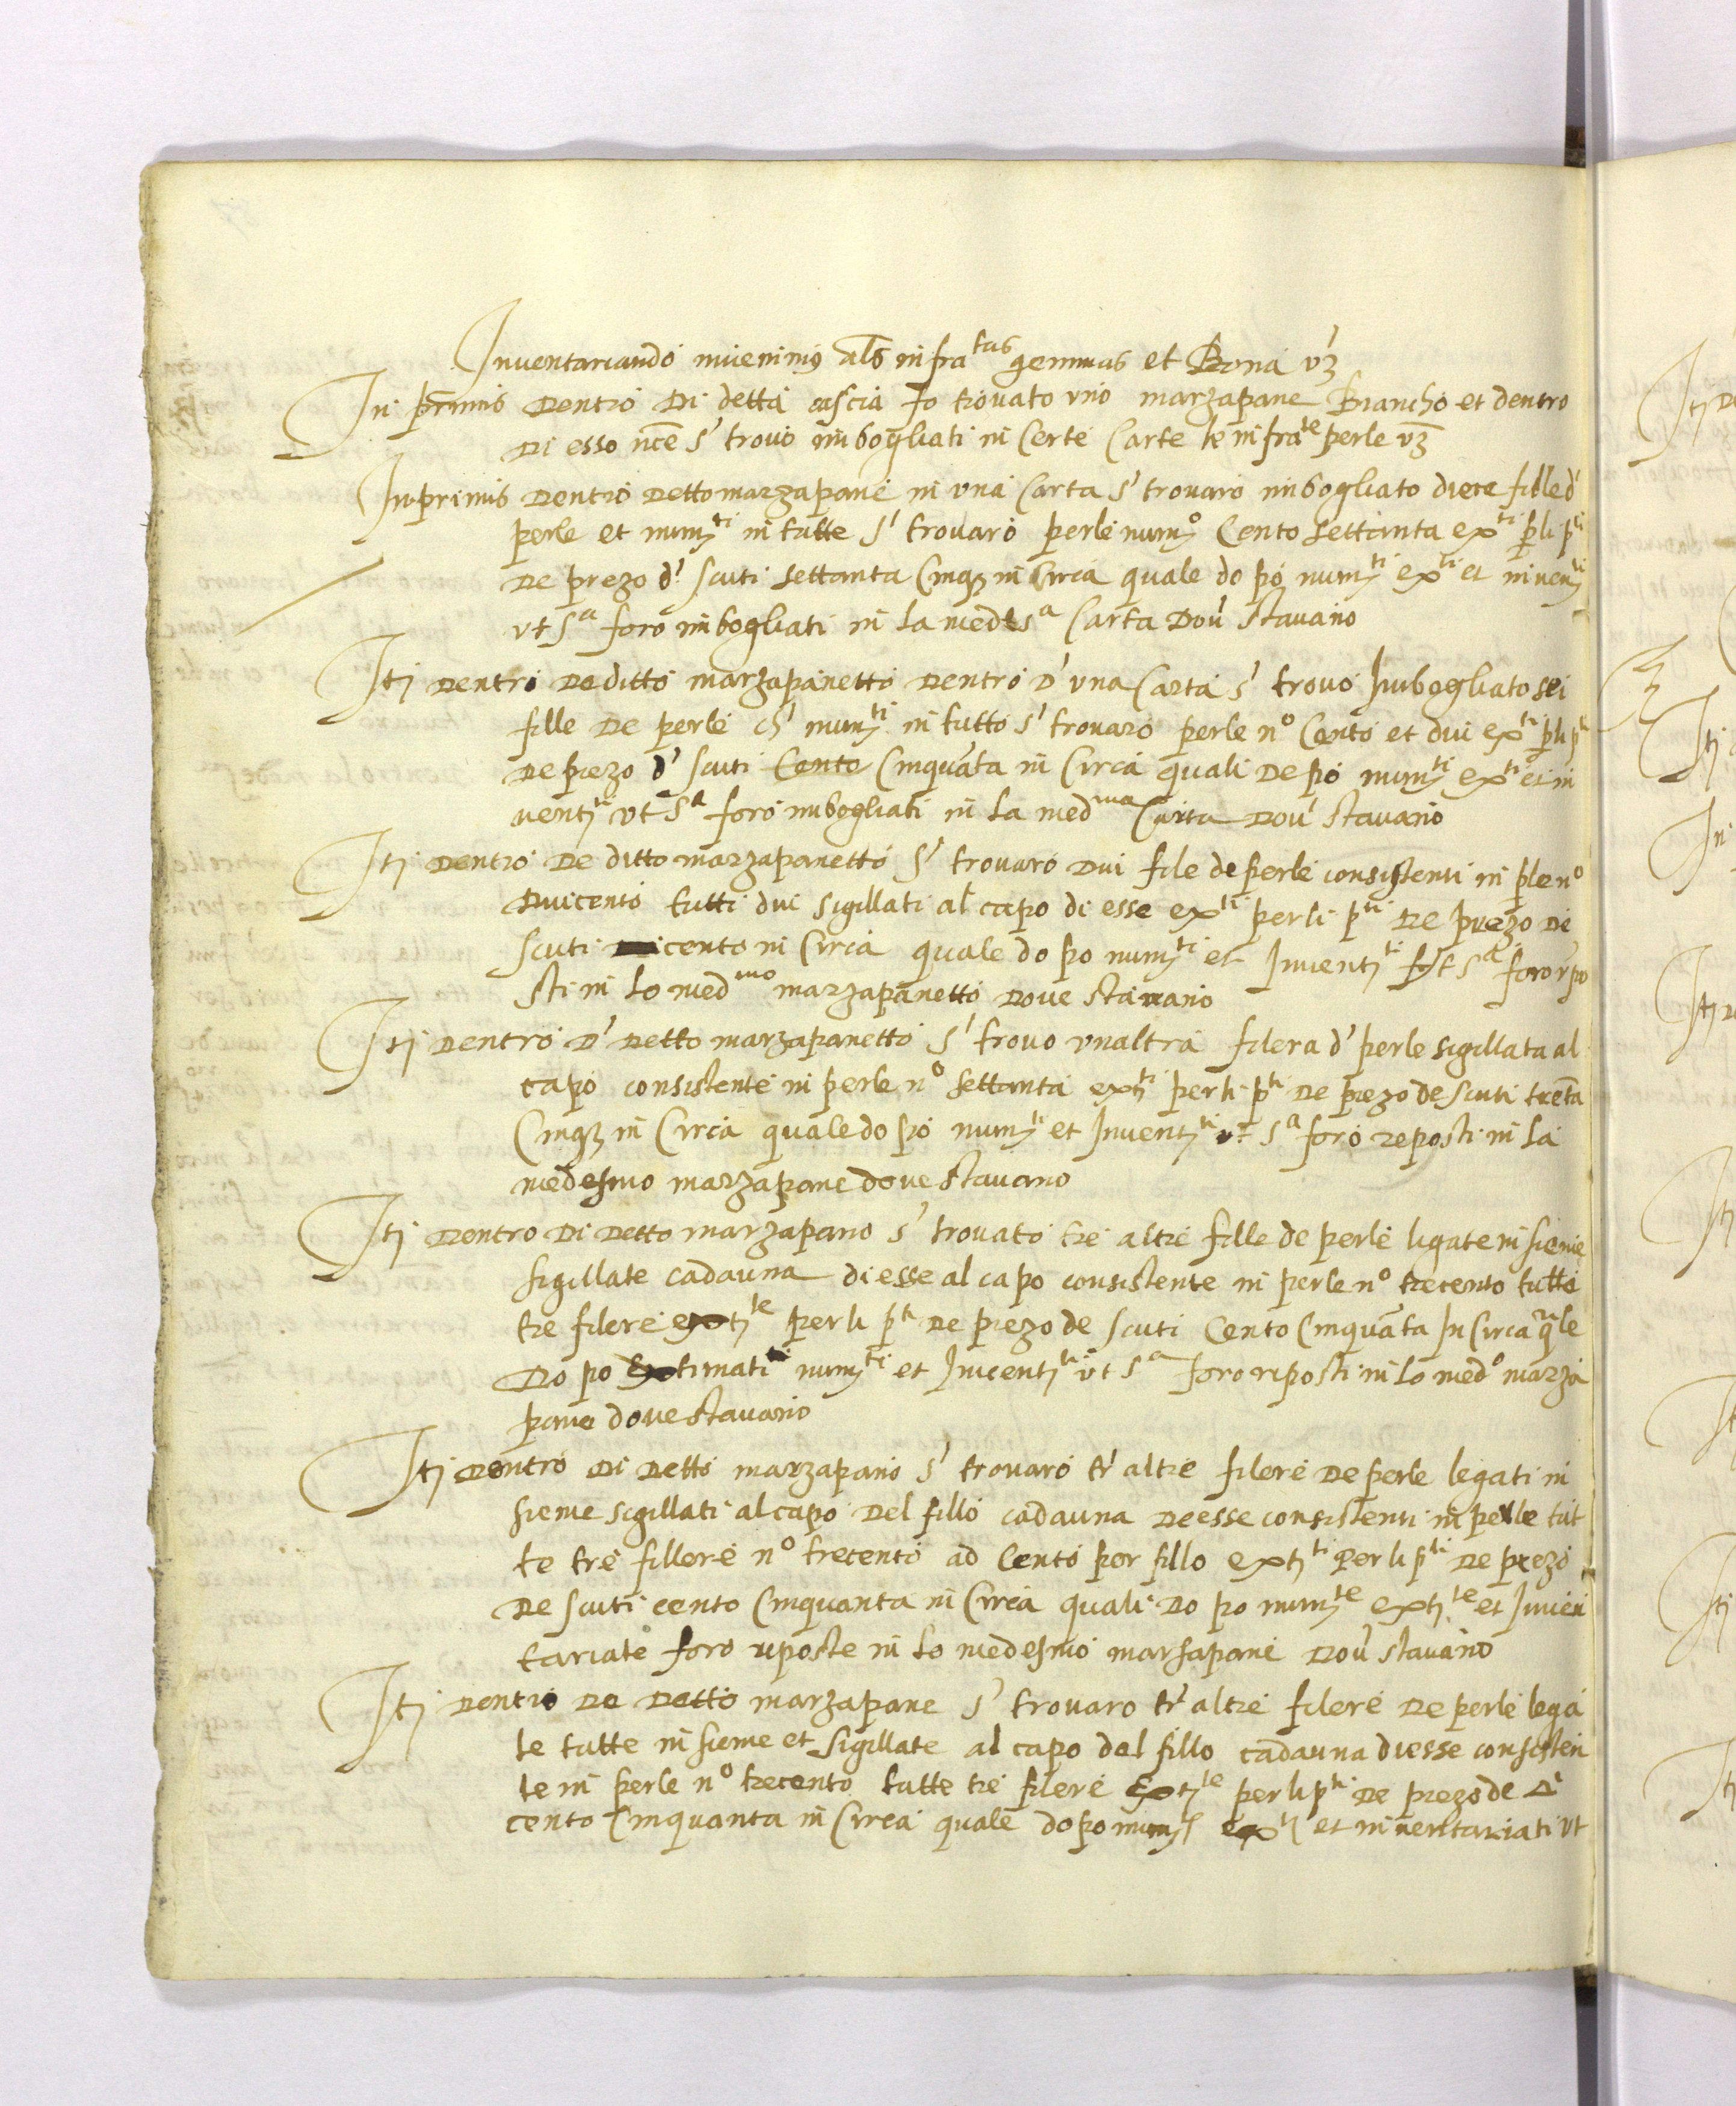 Inventariando invenimus als infra tas gemmas et Bona vz
In primis dentro di detta cascia fo trovato uno marzapane Biancho et dentro
di esso nce s' trovò imbogliati in certe Carte le infra te perle vz
Inprimis dentro detto marzapane in una Carta s' trovaro imbogliato diece fille d'
perle et num ti in tutte s' trovaro perle num o Cento settanta ex ti p li p ti
de prezo d' scuti settanta Cinq in Circa quale do po num ti ex ti et inven ti
ut s a foro imbogliati in la medes a Carta Dov' stavano
It dentro de ditto marzapanetto dentro d' una Carta s' trovò Imbogliato sei
fille de perle ch' num ti in tutto s' trovaro perle n o Cento et dui ex ti p li p ti
de prezo d' scuti Cento Cinquata in Circa quali depo num ti ex ti et in
vent ti ut s a foro imbogliati in la med ma Carta dov' stavano
It dentro de ditto marzapanetto s' trovaro dui file de perle consistenti in ple n o
Duicento tutti dui sigillati al capo di esse ex ti per li p ti de prezo de
scuti cento in Circa quale do po num ti et Invent ti ut s a foro rpo
sti in lo med mo marzapanetto dove stavano
It dentro d' detto marzapanetto s' trovo unaltra filera d' perle sigillata al
capo consistente in perle n o settanta ext ti per li p ti de prezo de scuti treta
Cinq in Circa quale do po num ti et Invent ti ut s a foro reposti in la
medesmo marzapane dove stavano
It dentro di detto marzapano s' trovato tre altre fille de perle ligate insieme
sigillate cadauna di esse al capo consistente in perle n o trecento tutte
tre filere ext te per li p ti de prezo de scuti Cento Cinquata In Circa qle
do po Extimati num ti et Invent ti ut s a foro reposti in lo med o marza
pane dove stavano
It dentro di detto marzapano s' trovaro tr' altre filere de perle legati in
sieme sigillati al capo del fillo cadauna de esse consistenti in perle tut
te tre fillere n o trecento ad Cento per fillo ext ti Per li p ti de prezo
de scuti cento Cinquanta in Circa quali do po num te ext te et Inven
tariate foro reposte in lo medesmo marsapane Dov' stavano
It dentro de detto marzapane s' trovaro tr' altre filere de perle lega
te tutte insieme et sigillate al capo del fillo cadauna diesse consisten
te in perle n o trecento tutte tre filere Ext te per li p ti de prezo de Δi
cento Cinquanta in Circa quale do po num ti ex ti et inventariati ut